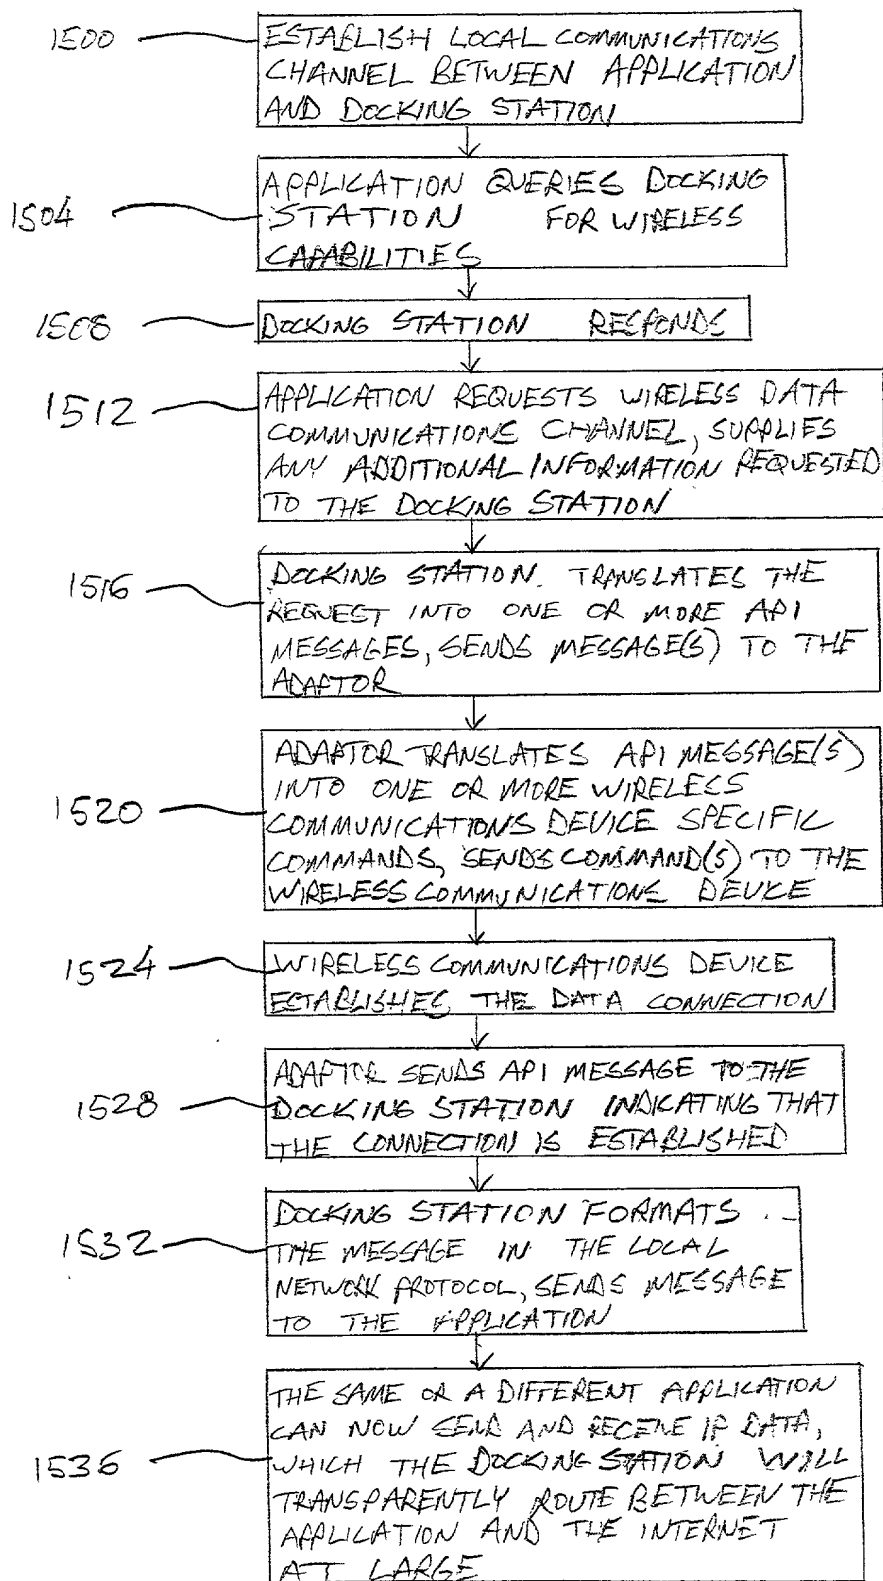 1500
ESTABLISH LOCAL COMMUNICATIONS
CHANNEL BETWEEN APPLICATION
AND DOCKING STATION
1504
APPLICATION QUERIES DOCKING
STATION FOR WIRELESS
CAPABILITIES
1508
DOCKING STATION RESPONDS
1512
APPLICATION REQUESTS WIRELESS DATA
COMMUNICATIONS CHANNEL, SUPPLIES
ANY ADDITIONAL INFORMATION REQUESTED
TO THE DOCKING STATION
1516
DOCKING STATION. TRANSLATES THE
REQUEST INTO ONE OR MORE API
MESSAGES, SENDS MESSAGE(S) TO THE
ADAPTOR
1520
ADAPTOR TRANSLATES API MESSAGE(S)
INTO ONE OR MORE WIRELESS
COMMUNICATIONS DEVICE SPECIFIC
COMMANDS, SENDS COMMAND(S) TO THE
WIRELESS COMMUNICATIONS DEVICE
1524
WIRELESS COMMUNICATIONS DEVICE
ESTABLISHES THE DATA CONNECTION
1528
ADAPTOR SENDS API MESSAGE TO THE
DOCKING STATION INDICATING THAT
THE CONNECTION IS ESTABLISHED
1532
DOCKING STATION FORMATS
THE MESSAGE IN THE LOCAL
NETWORK PROTOCOL, SENDS MESSAGE
TO THE APPLICATION
1536
THE SAME OR A DIFFERENT APPLICATION
CAN NOW SEND AND RECEIVE IP DATA,
WHICH THE DOCKING STATION WILL
TRANSPARENTLY ROUTE BETWEEN THE
APPLICATION AND THE INTERNET
AT LARGE